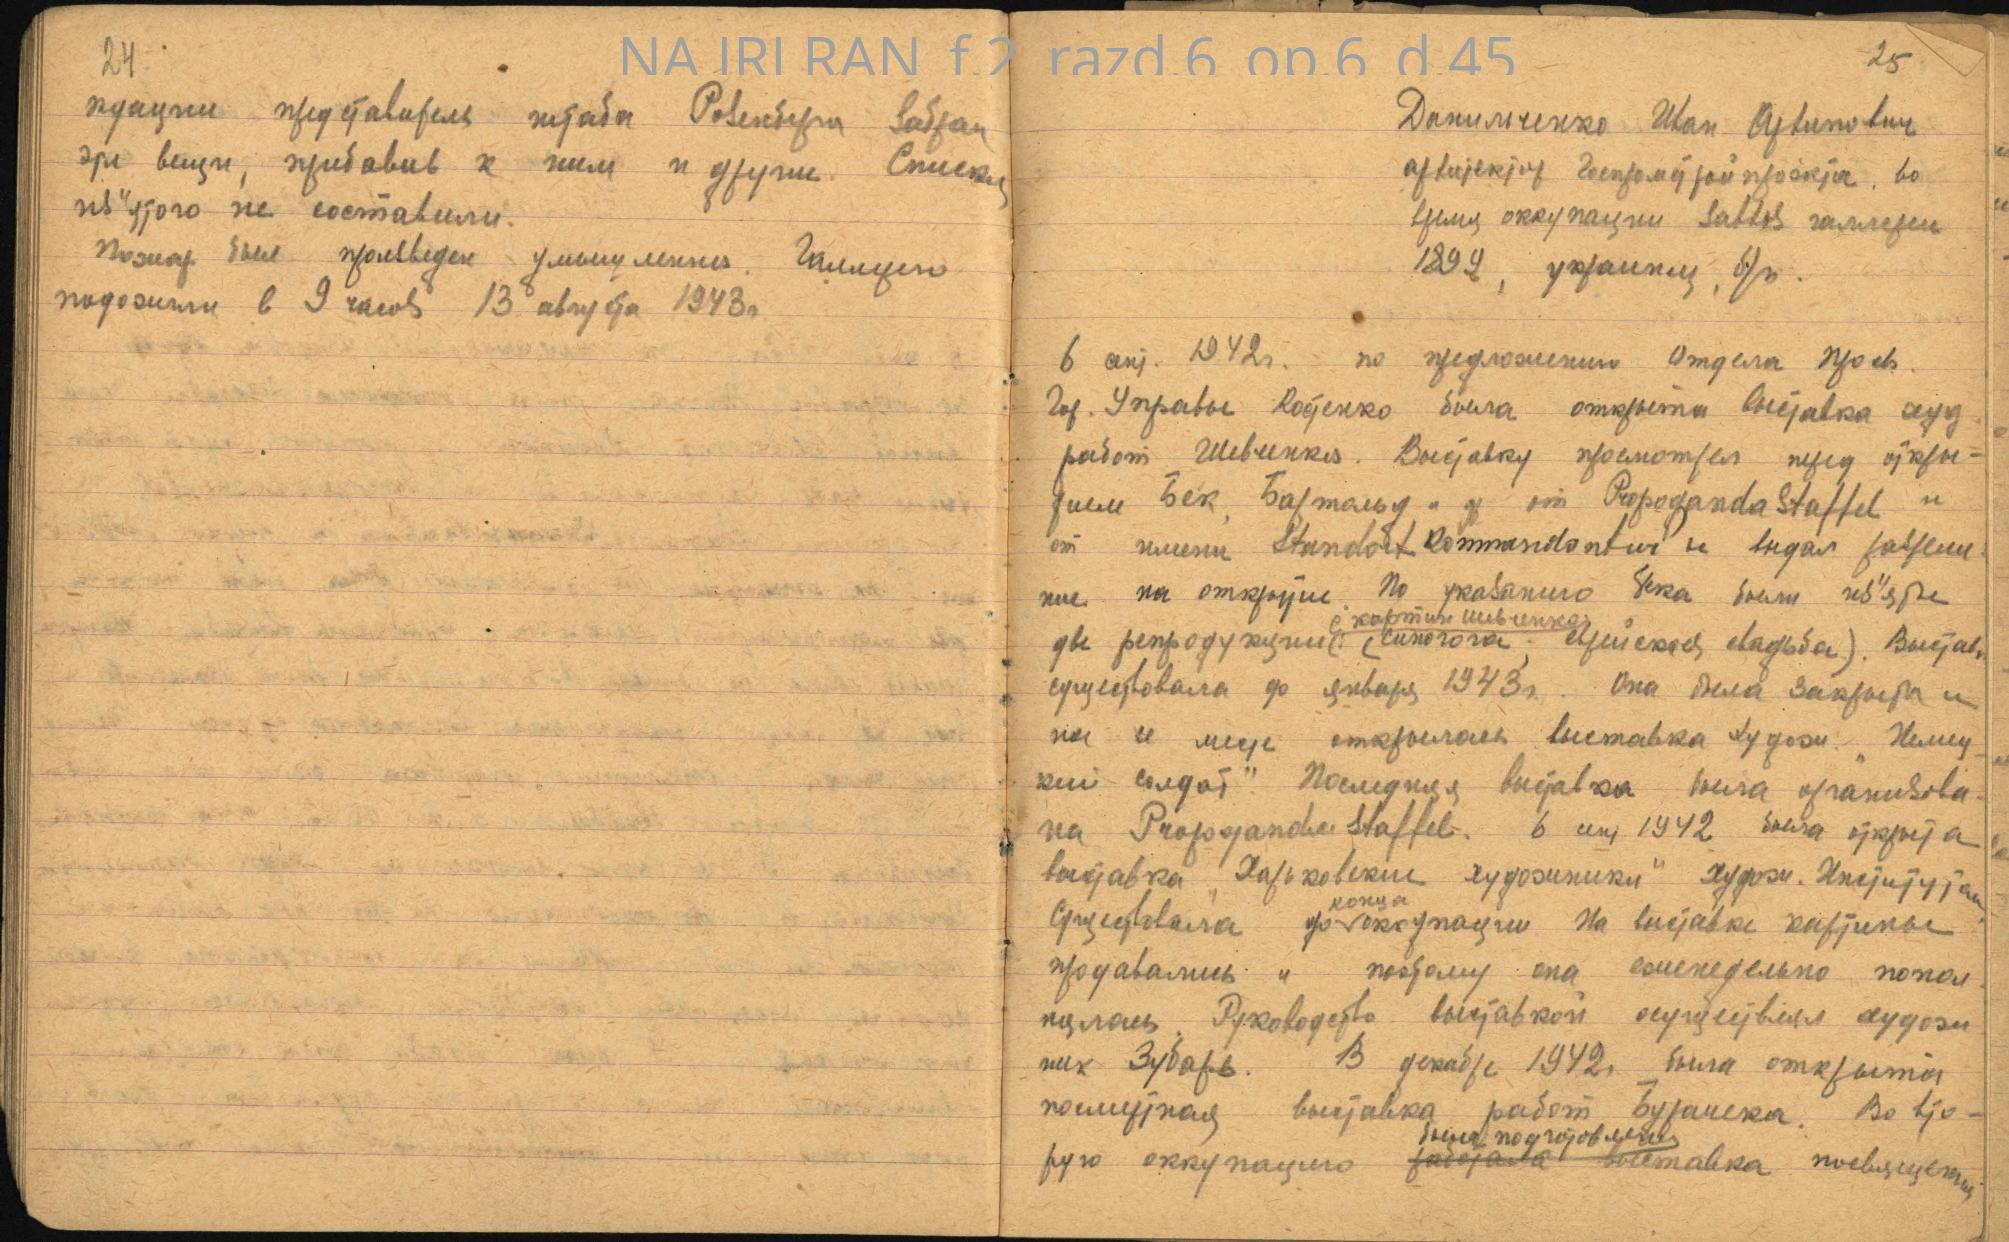 NA IRI RAN f.2 razd.6 op.6 d.45
24.
представитель штаба Розенберга забрал
эти вещи, прибавив к ним и другие. Списка
из"ятого не составили.
Пожар был произведен умышленно. Галлерею
подожгли в 9 часов 13 августа 1943г
25
Данильченко Иван Архипович
архитектор Госпромстройпроекта, во
время оккупации завхоз галлереи
1899, украинец, б/п.
В окт. 1942г. по предложению Отдела Просв.
Гор. Управы Костенко была открыта выставка худ
работ Шевченко. Выставку просмотрел перед откры-
тием Бек, Бартольд и др от Propoganda Staffel и
от имени Standort Kommandantur и выдал разреше
ние на открытие По указанию Бека были из"яты
с картин Шевченко
две репродукции (Синагога, еврейская свадьба). Выстав.
существовала до января 1943г. Она была закрыта и
на ее месте открылась выставка худож. „Немец-
кий солдат". Последняя выставка была организова-
на Propaganda Staffel. В 1942 была открыта
выставка „Харьковские художники" худож. Институтом
конца
Существовала до оккупации На выставке картины
продавались и поэтому она еженедельно попол
нялась. Руководство выставкой осуществлял худож
ник Зубарь. В декабре 1942г была открыта
посмертная выставка работ Бурачека. Во вто-
была подготовлена
рую оккупацию работала выставка посвященная